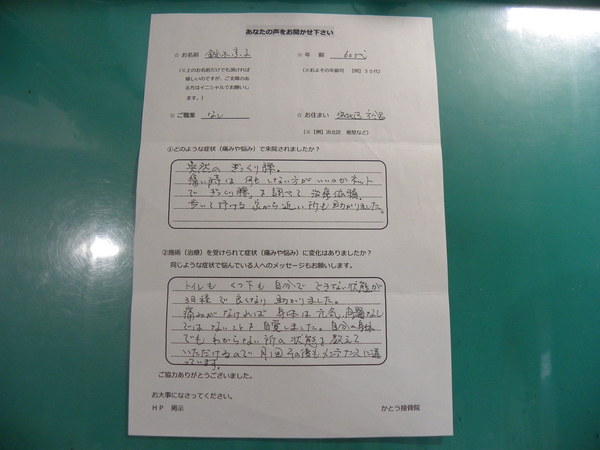 あなたの声をお聞かせ下さい
☆ お名前
☆ 年　齢　60代
(※上のお名前だけでも頂ければ
嬉しいのですが、ご支障のあ
る方はイニシャルでお願いし
ます。)
(※およその年齢可　【例】３０代)
☆ ご職業　なし
☆ お住まい
(※【例】浜北区　根堅など)
①どのような症状（痛みや悩み）で来院されましたか？
突然の ぎっくり腰。
痛い時は 何も しない方が いいのか ネット
で ぎっくり腰 を 調べて 治療体験。
歩いて行ける 近い所も 助かりました。
②施術（治療）を受けられて症状（痛みや悩み）に変化はありましたか？
同じような症状で悩んでいる人へのメッセージもお願いします。
トイレも くつ下も 自分で できない状態が
3日程 で 良くなり 助かりました。
痛みが なければ 身体は 元気、問題なし
ではないことを 自覚しました。自分の身体
でも わからない所の 状態を 教えて
いただけるので 月1回 その後も メンテナンスに通
っています。
ご協力ありがとうございました。
お大事になさってください。
ＨＰ　掲示
かとう接骨院